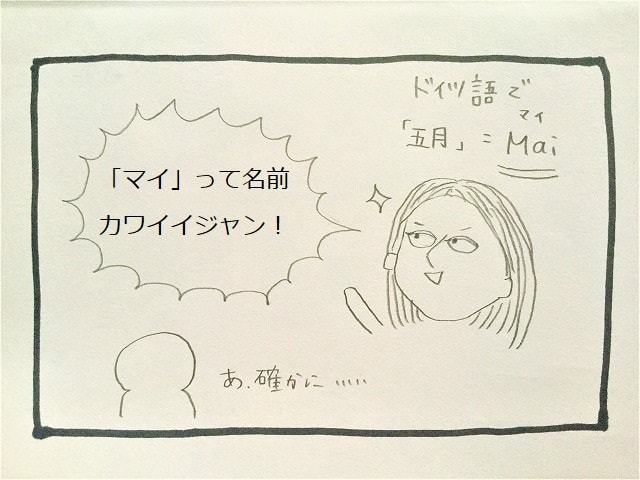 ドイツ語で
マイ
「五月」= Mai
「マイ」って名前
カワイイジャン！
あ、確かに……